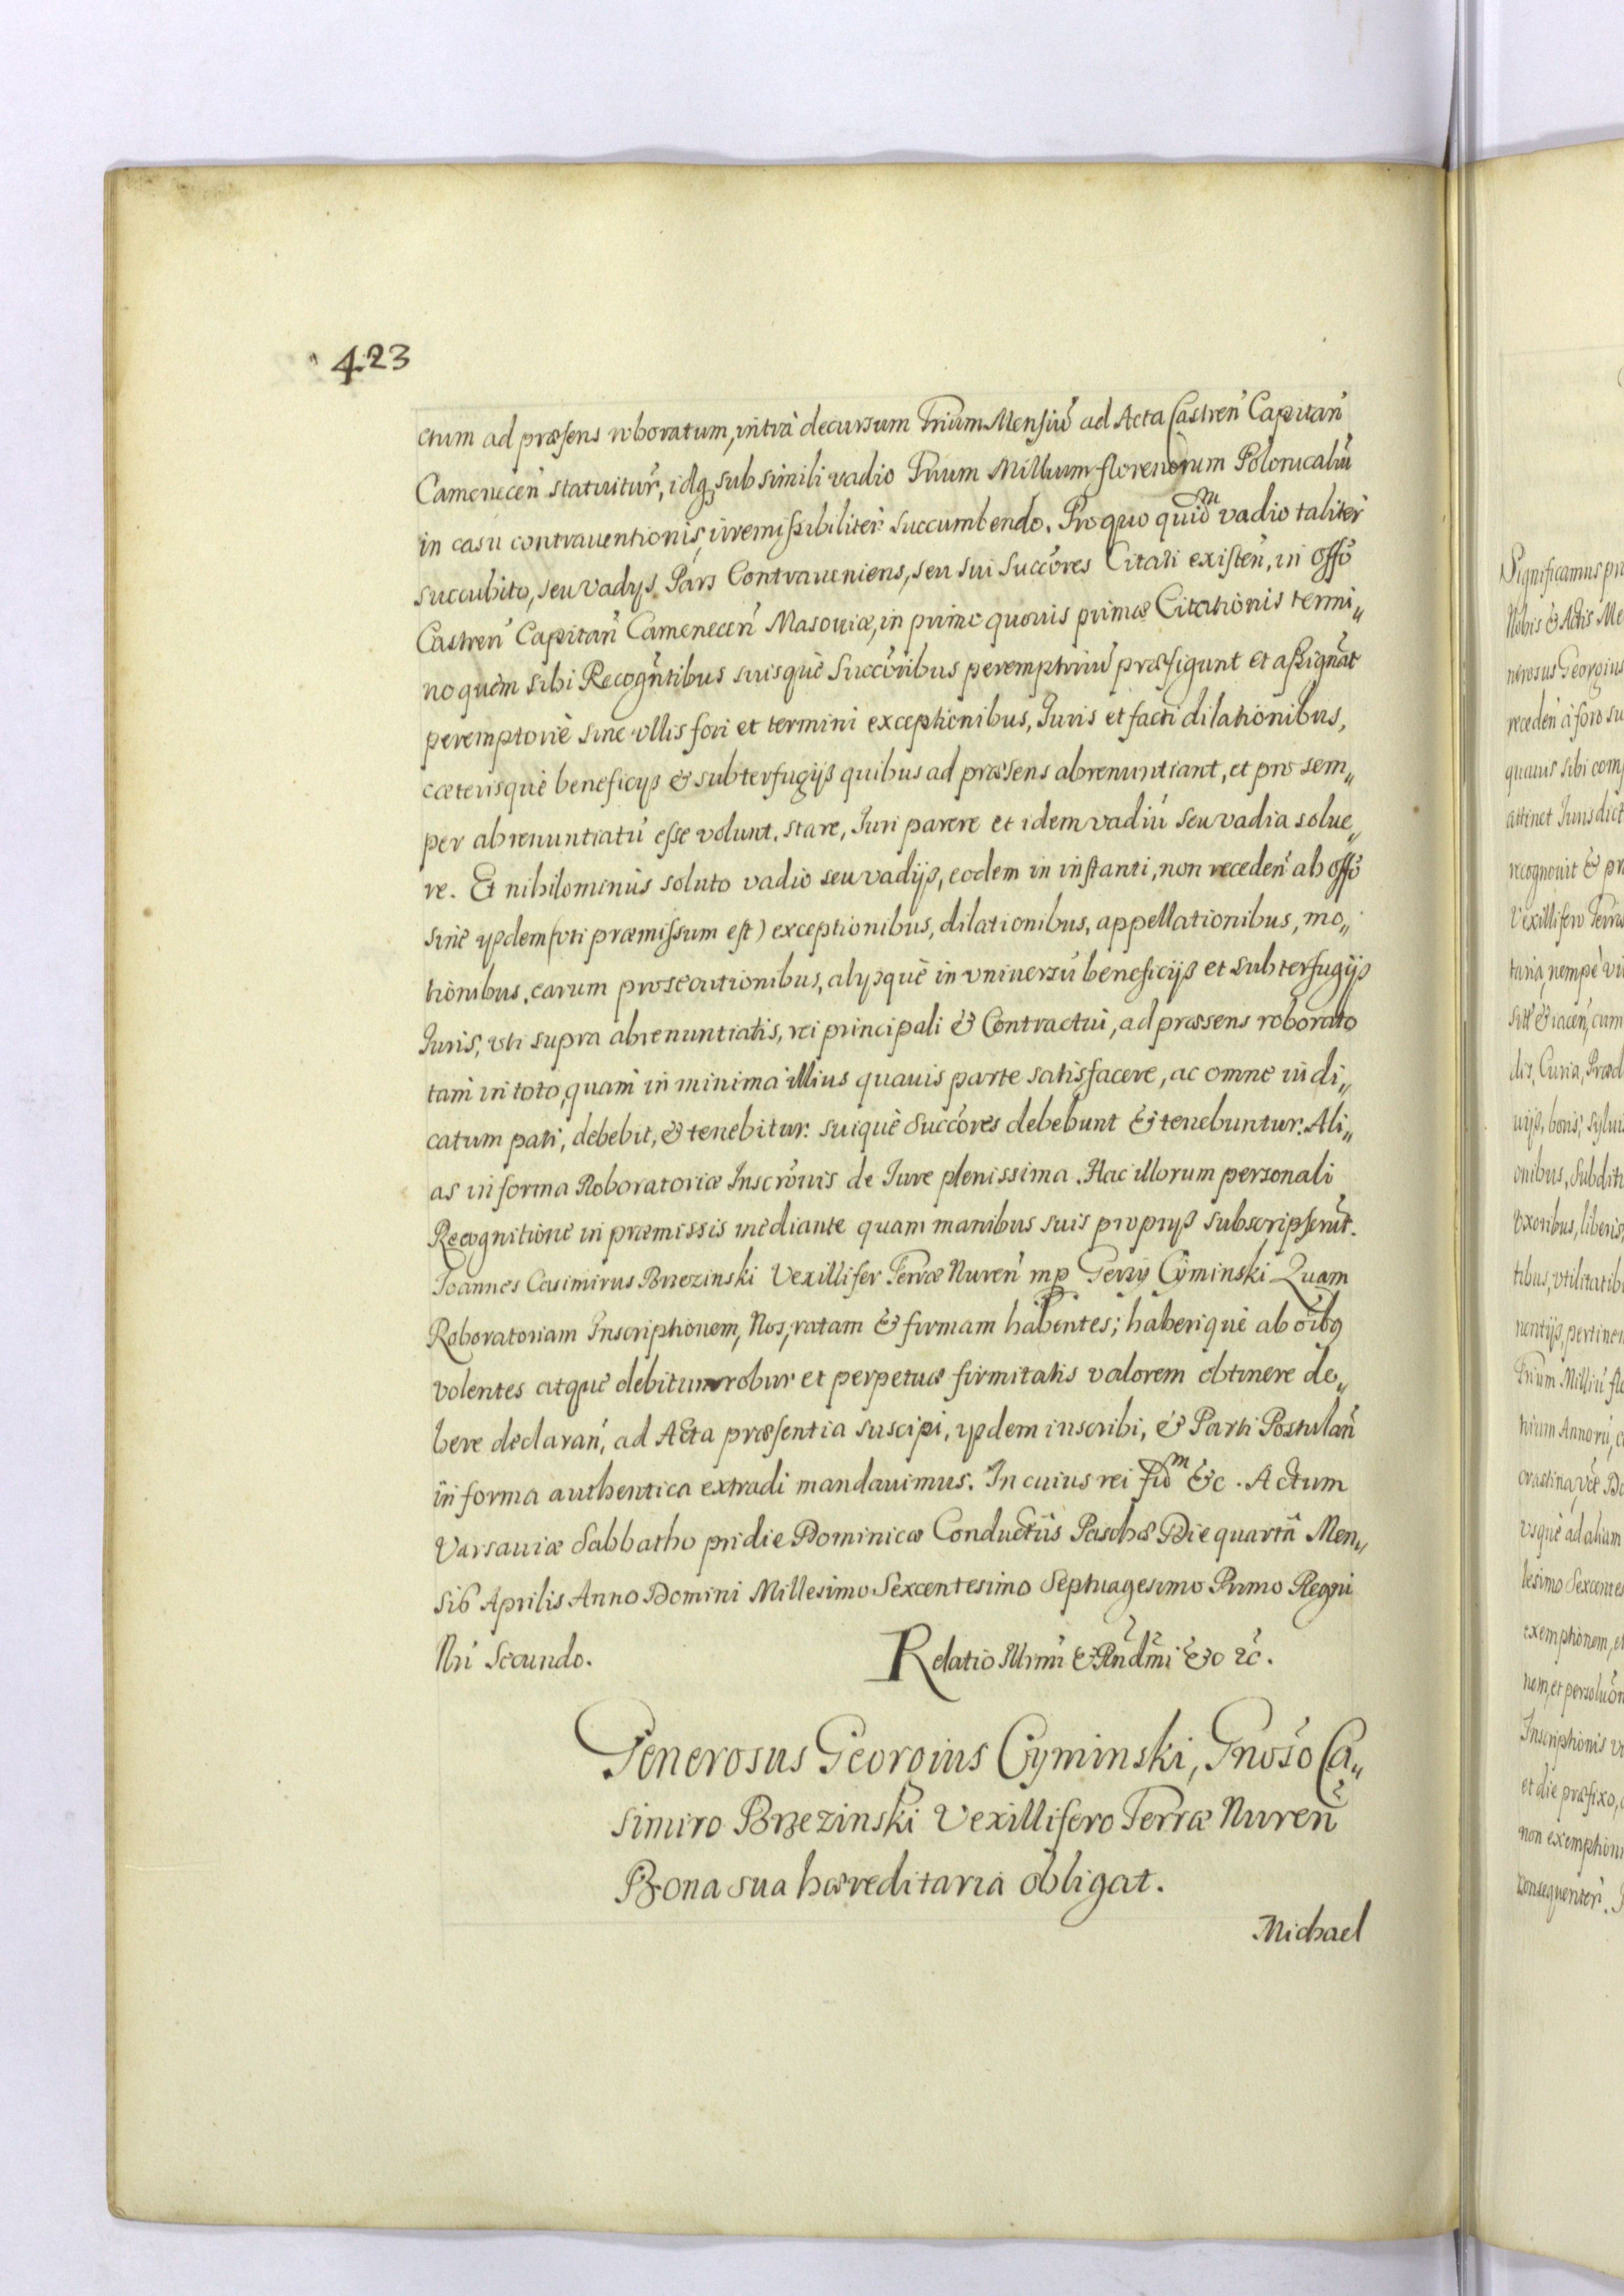 423
ctum ad præsens roboratum, intrà decursum Trium Mensiū ad Acta Castren̄ Capitan̄
Camenecen̄ statuitur, idq; sub simili vadio Trium Millium florenorum Polonicaliū
in casu contrauentionis, irremissibiliter succumbendo. Pro quo quidᵐ vadio taliter
succubito, seu vadijs Pars Contraueniens, seu sui Succōres Citati existen̄, in Offō
Castren̄ Capitan̄ Camenecen̄ Masouiæ, in primo quouis primæ Citationis termi„
no quem sibi Recogn̄tibus suisquè Succōribus peremptoriū præfigunt et assignāt
peremptoriè sine vllis fori et termini exceptionibus, Juris et facti dilationibus,
cæterisquè beneficijs & subterfugijs quibus ad præsens abrenuntiant, et pro sem„
per abrenuntiatū esse volunt. stare, Juri parere et idem vadiū seu vadia solue„
re. Et nihilominùs soluto vadio seu vadijs, eodem in instanti, non receden̄ ab offō
sinè ijsdem (vti præmissum est) exceptionibus, dilationibus, appellationibus, mo„
tionibus, earum prosecutionibus, alijsquè in vniuersū beneficijs et subterfugijs
Juris, vti supra abrenuntiatis, rei principali & Contractui, ad præsens roborato
tam in toto, quam in minima illius quauis parte satisfacere, ac omne iudi„
catum pati, debebit, & tenebitur. suiquè Succōres debebunt & tenebuntur. Ali„
as in forma Roboratoriæ Inscrōnis de Jure plenissima. Hac illorum personali
Recognitione in præmissis mediante quam manibus suis proprijs subscripserūt.
Joannes Casimirus Brzezinski Vexillifer Terræ Nuren̄ mp Jerzy Cyminski Quam
Roboratoriam Inscriptionem, Nos, ratam & firmam habentes; haberiquè ab oībq
volentes atquè debitum robur et perpetuæ firmitatis valorem obtinere de„
bere declaran̄, ad Acta præsentia suscipi, ijsdem inscribi, & Parti Postulan̄
in forma authentica extradi mandauimus. In cuius rei fidᵐ &c. Actum
Varsauiæ Sabbatho pridie Dominicæ Conductūs Paschæ Die quartâ Men„
sis Aprilis Anno Domini Millesimo Sexcentesimo Septuagesimo Primo Regni
Nri Secundo. Relatio Illrmi & Rndmi &c &c.
Generosus Georgius Cyminski, Gnoso Ca„
simiro Brzezinski Vexillifero Terræ Nuren̄
Bona sua hæreditaria obligat.
Michael
Nobis & Actis Me
nerosus Georgius
receden̄ à foro su
quauis sibi comp
attinet Jurisdict
recognouit & pr
Vexillifero Terræ
onibus, Subditi
vxoribus, liberis,
tibus, vtilitatib
Trium Milliū flo
trium Annorū, c
vsquè ad aliam
lesimo Sexcentes
exemptionem, et
Inscriptionis v
et die præfixo,
non exemptioni
consequenter.